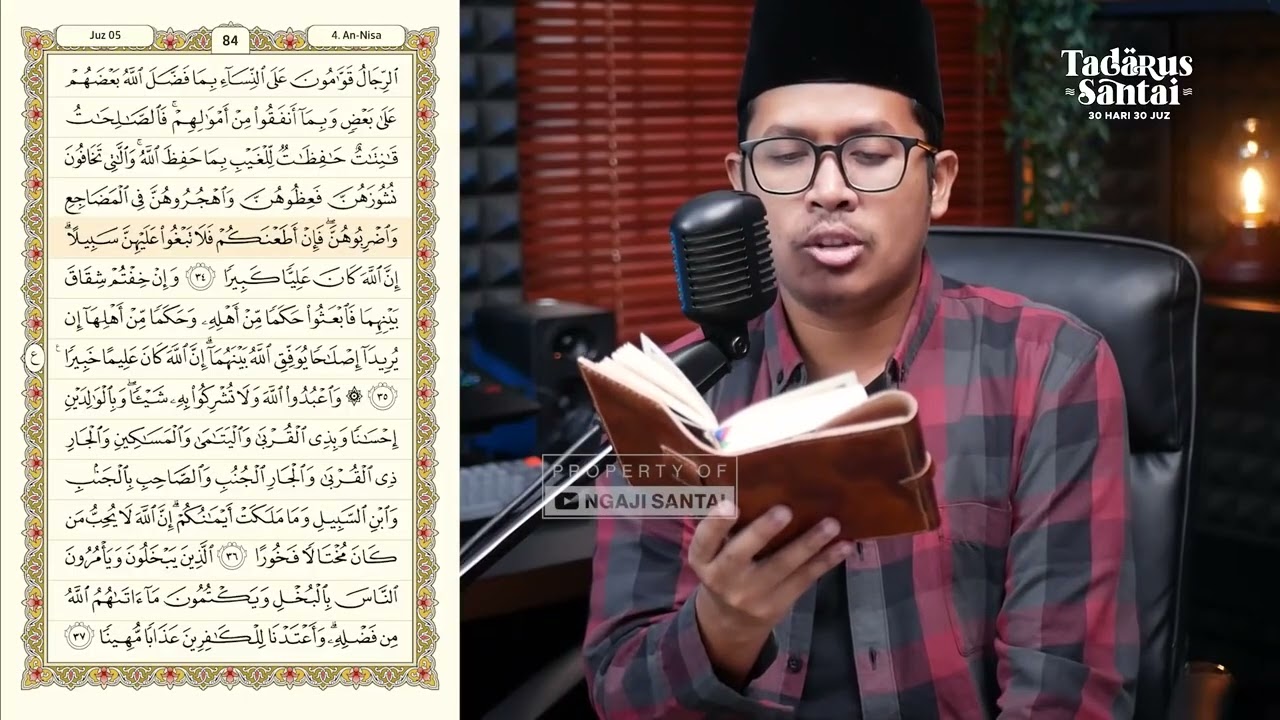 Juz 05
84
4. An-Nisa
الرِّجَالُ قَوَّامُونَ عَلَى النِّسَاءِ بِمَا فَضَّلَ اللَّهُ بَعْضَهُمْ
عَلَىٰ بَعْضٍ وَبِمَا أَنفَقُوا مِنْ أَمْوَالِهِمْ ۚ فَالصَّالِحَاتُ
قَانِتَاتٌ حَافِظَاتٌ لِّلْغَيْبِ بِمَا حَفِظَ اللَّهُ ۚ وَالَّتِي تَخَافُونَ
نُشُوزَهُنَّ فَعِظُوهُنَّ وَاهْجُرُوهُنَّ فِي الْمَضَاجِعِ
وَاضْرِبُوهُنَّ ۖ فَإِنْ أَطَعْنَكُمْ فَلَا تَبْغُوا عَلَيْهِنَّ سَبِيلًا ۗ
إِنَّ اللَّهَ كَانَ عَلِيًّا كَبِيرًا ٣٤ وَإِنْ خِفْتُمْ شِقَاقَ
بَيْنِهِمَا فَابْعَثُوا حَكَمًا مِّنْ أَهْلِهِ وَحَكَمًا مِّنْ أَهْلِهَا إِن
يُرِيدَا إِصْلَاحًا يُوَفِّقِ اللَّهُ بَيْنَهُمَا ۗ إِنَّ اللَّهَ كَانَ عَلِيمًا خَبِيرًا
ع
٣٥ ۞ وَاعْبُدُوا اللَّهَ وَلَا تُشْرِكُوا بِهِ شَيْئًا ۖ وَبِالْوَالِدَيْنِ
إِحْسَانًا وَبِذِي الْقُرْبَىٰ وَالْيَتَامَىٰ وَالْمَسَاكِينِ وَالْجَارِ
ذِي الْقُرْبَىٰ وَالْجَارِ الْجُنُبِ وَالصَّاحِبِ بِالْجَنبِ
وَابْنِ السَّبِيلِ وَمَا مَلَكَتْ أَيْمَانُكُمْ ۗ إِنَّ اللَّهَ لَا يُحِبُّ مَن
كَانَ مُخْتَالًا فَخُورًا ٣٦ الَّذِينَ يَبْخَلُونَ وَيَأْمُرُونَ
النَّاسَ بِالْبُخْلِ وَيَكْتُمُونَ مَا آتَاهُمُ اللَّهُ
مِن فَضْلِهِ ۗ وَأَعْتَدْنَا لِلْكَافِرِينَ عَذَابًا مُّهِينًا ٣٧
Tadärus
Santai
30 HARI 30 JUZ
PROPERTY OF
NGAJI SANTAI